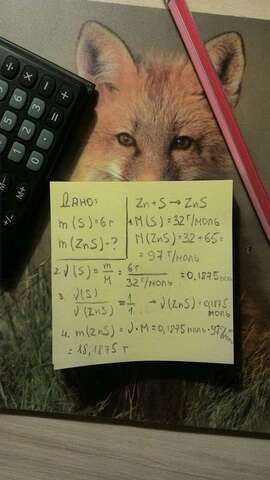 Дано:
m(S)=6г
m(ZnS)-?
Zn+S→ZnS
1. M(S)=32г/моль
M(ZnS)=32+65=
=97г/моль
2. ν(S)=m/M=6г/32г/моль=0,1875моль
3. ν(S)/ν(ZnS)=1/1 →ν(ZnS)=0,1875
моль
4. m(ZnS)=ν·M=0,1875моль·97г/моль
=18,1875г